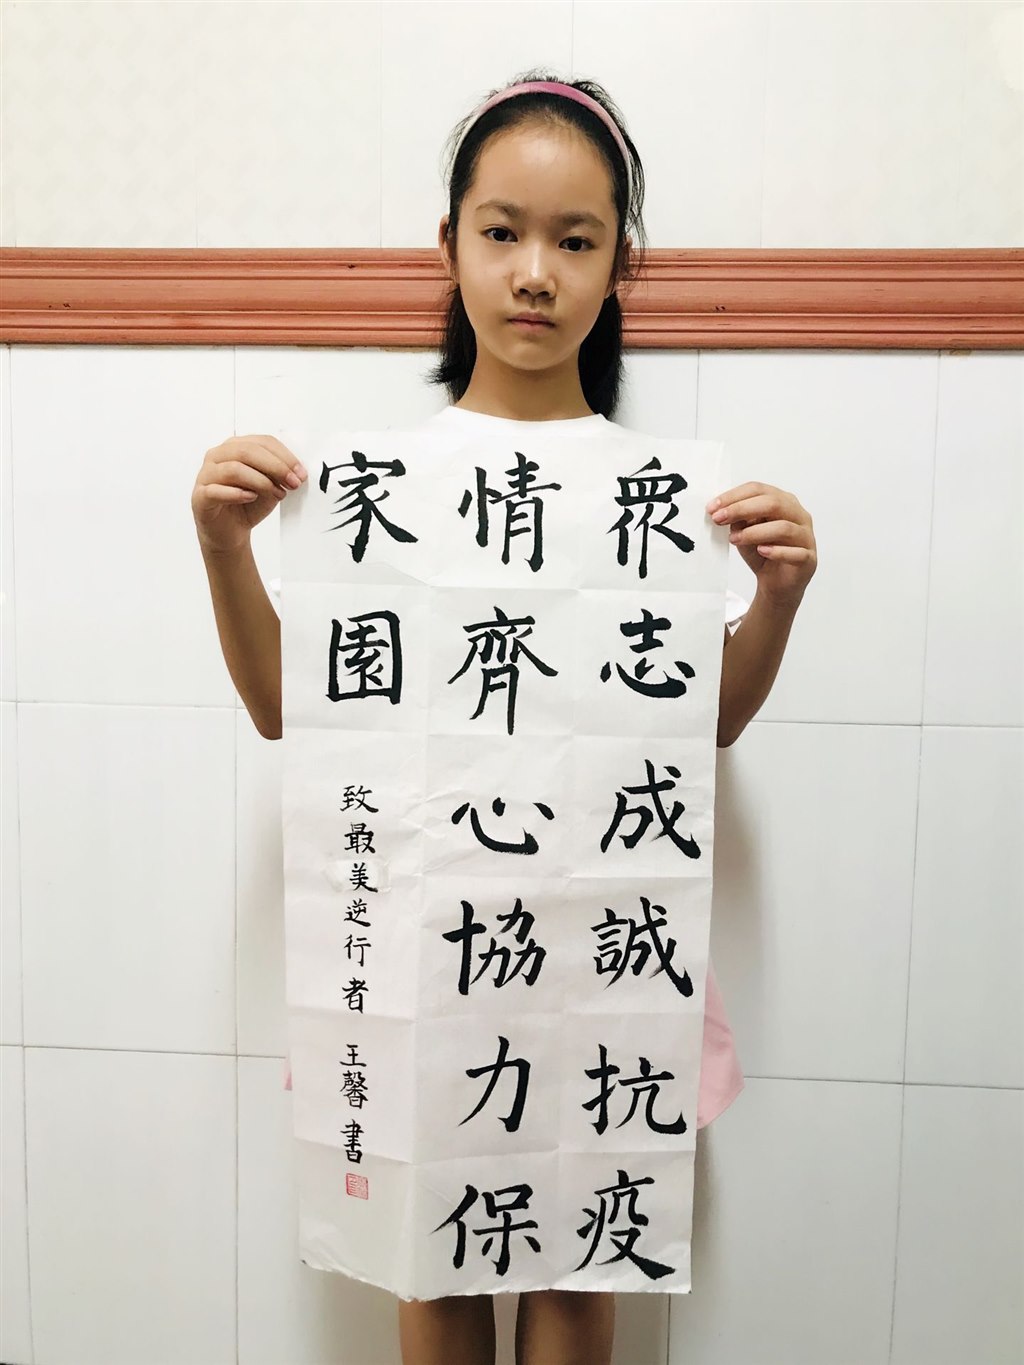 衆志成誠抗疫
情齊心協力保
家園
致最美逆行者 王馨書